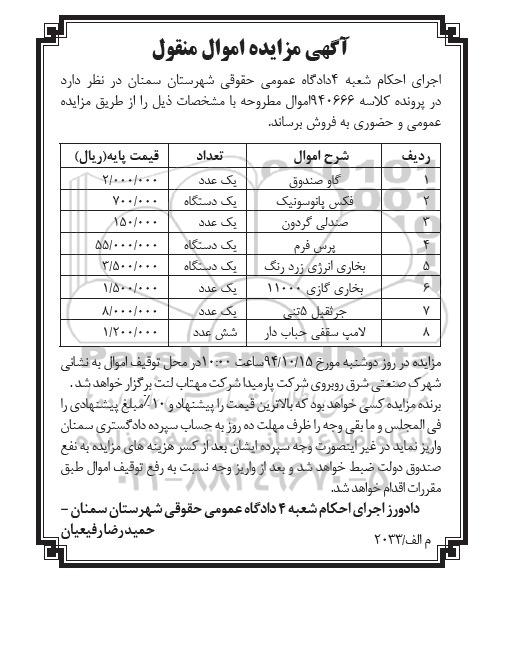 آگهی مزایده اموال منقول
اجرای احکام شعبه ۴دادگاه عمومی حقوقی شهرستان سمنان در نظر دارد
در پرونده کلاسه ۹۴۰۶۶۶اموال مطروحه با مشخصات ذیل را از طریق مزایده
عمومی و حضوری به فروش برساند.
ردیف شرح اموال تعداد قیمت پایه(ریال)
۱ گاو صندوق یک عدد ۲/۰۰۰/۰۰۰
۲ فکس پانوسونیک یک دستگاه ۷۰۰/۰۰۰
۳ صندلی گردون یک عدد ۱۵۰/۰۰۰
۴ پرس فرم یک دستگاه ۵۵/۰۰۰/۰۰۰
۵ بخاری انرژی زرد رنگ یک دستگاه ۳/۵۰۰/۰۰۰
۶ بخاری گازی ۱۱۰۰۰ یک عدد ۱/۵۰۰/۰۰۰
۷ جرثقیل ۵تنی یک عدد ۸/۰۰۰/۰۰۰
۸ لامپ سقفی حباب دار شش عدد ۱/۲۰۰/۰۰۰
مزایده در روز دوشنبه مورخ ۹۴/۱۰/۱۵ساعت ۱۰:۰۰در محل توقیف اموال به نشانی
شهرک صنعتی شرق روبروی شرکت پارمیدا شرکت مهتاب لنت برگزار خواهد شد .
برنده مزایده کسی خواهد بود که بالاترین قیمت را پیشنهاد و ۱۰٪مبلغ پیشنهادی را
فی المجلس و ما بقی وجه را ظرف مهلت ده روز به حساب سپرده دادگستری سمنان
واریز نماید در غیر اینصورت وجه سپرده ایشان بعد از کسر هزینه های مزایده به نفع
صندوق دولت ضبط خواهد شد و بعد از واریز وجه نسبت به رفع توقیف اموال طبق
مقررات اقدام خواهد شد.
دادورز اجرای احکام شعبه ۴ دادگاه عمومی حقوقی شهرستان سمنان –
حمیدرضا رفیعیان
م الف/۲۰۳۳